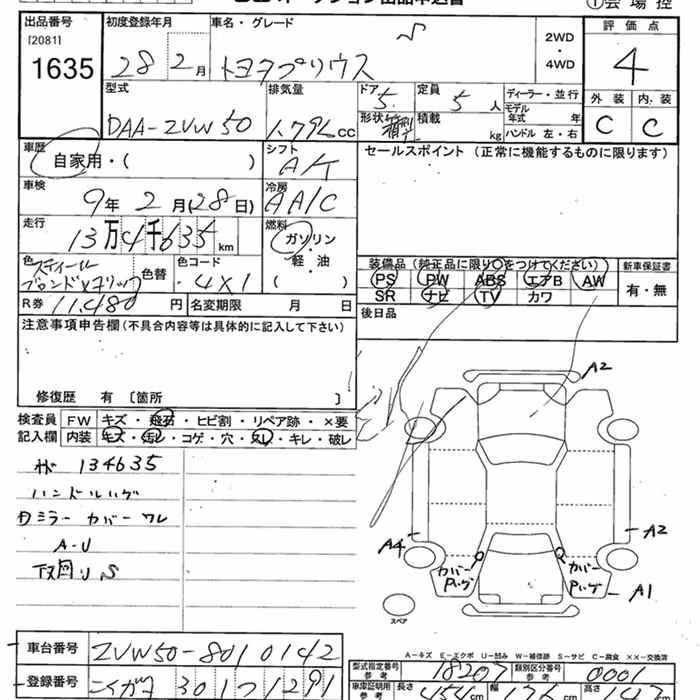 出品番号
[2081]
1635
初度登録年月
28年 2月
車名・グレード
トヨタプリウス
S
2WD
・
4WD
評価点
4
外装 内装
C C
型式
DAA-ZVW50
排気量
1.79L CC
ドア
5
定員
5人
形状
積載
kg
ディーラー・並行
モデル年式 年
ハンドル 左・右
車歴
自家用・( )
シフト
A/T
セールスポイント (正常に機能するものに限ります)
車検
9年 2月 (28日)
冷房
AAC
走行
13万4千635km
燃料
ガソリン
・
軽・油
( )
色
スティール
ブロンドメタリック
色替
色コード
4X1
装備品 (純正品に限り○をつけてください)
PS PW ABS エアB AW
SR ナビ TV カワ
新車保証書
有・無
R券
11,480円
名変期限 月 日
後日品
注意事項申告欄 (不具合内容等は具体的に記入して下さい)
修復歴 有 〔箇所 〕
検査員
記入欄
FW キズ・飛石・ヒビ割・リペア跡・×要
内装 キズ・汚レ・コゲ・穴・スレ・キレ・破レ
134635
ハンドルハゲ
ミラーカバーワレ
A-U
下回りS
A2
A4
A2
A1
カバー
カバー
スペア
A-キズ E-エクボ U-凹み W-補修跡 S-サビ C-腐食 ××-交換済
車台番号
ZVW50-8010142
登録番号
ニイガタ 301
型式指定番号
参考
18207
類別区分番号
参考
0001
車庫証明用
参考
長さ
454cm
幅
176cm
高さ